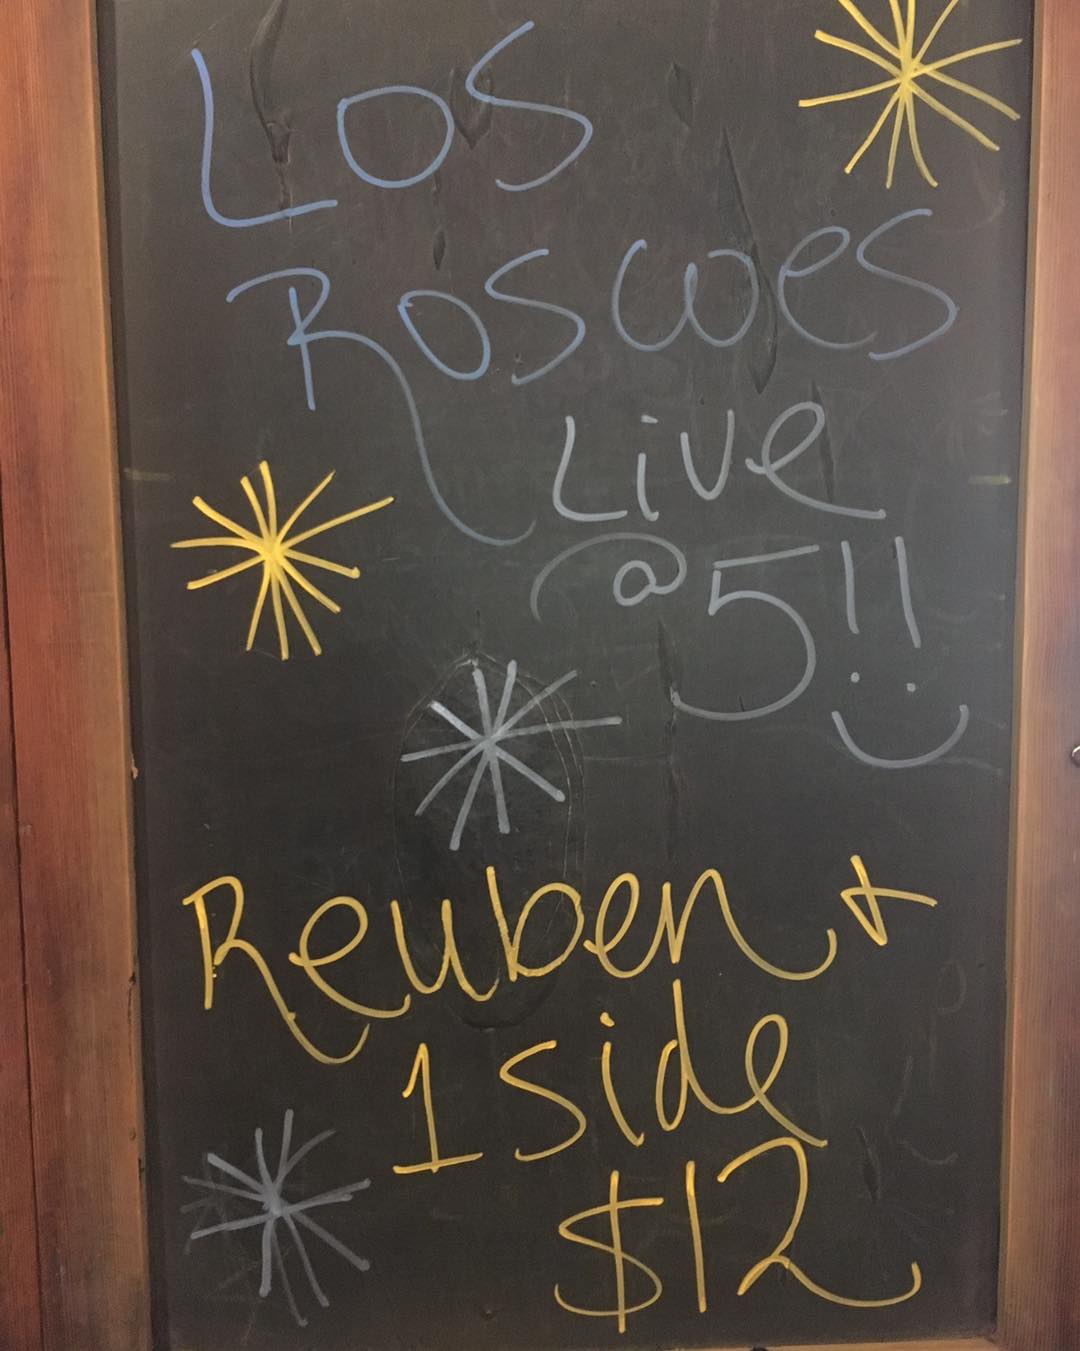 Los
Roscoes
Live
@ 5!!
Reuben +
1 side
$12